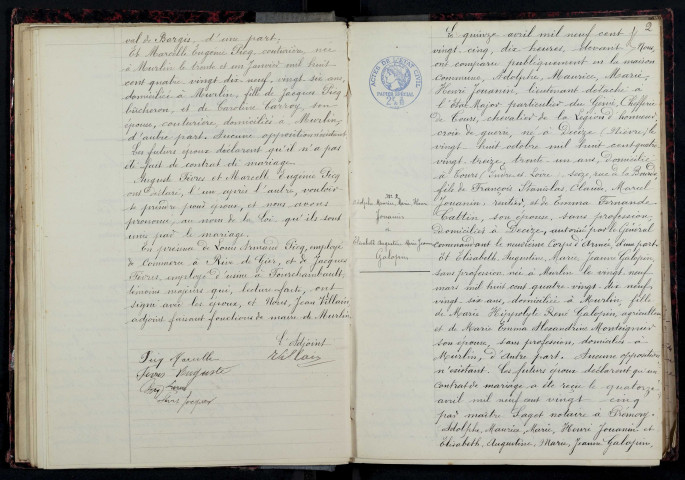 val de Bargis, d'une part.
Et Marcelle Eugénie Picq, couturière, née
à Murlin le trente et un janvier mil huit
cent quatre vingt dix neuf, vingt six ans,
domiciliée à Murlin, fille de Jacques Picq
bûcheron, et de Caroline Carroy, son
épouse, couturière, domiciliés à Murlin,
d'autre part. Aucune opposition n'existant.
Les futurs époux déclarent qu'il n'a pas
été fait de contrat de mariage.
Auguste Fèvres et Marcelle Eugénie Picq
ont déclaré, l'un après l'autre, vouloir
se prendre pour époux, et nous avons
prononcé, au nom de la Loi qu'ils sont
unis par le mariage.
En présence de Louis Armand Picq, employé
de Commerce à Rive de Gier, et de Jacques
Fèvres, employé d'usine à Fourchambault,
témoins majeurs qui, lecture fait, ont
signé avec les époux, et Nous, Jean Villain
adjoint faisant fonctions de maire de Murlin.
L'Adjoint
Picq Marcelle
Fèvres Auguste
2
ACTES DE L'ETAT CIVIL
PAPIER SPECIAL
N° 2
Adolphe Maurice Marie Henri
Jouanin
&
Elisabeth Augustine Marie Jeanne
Galopin
Le quinze avril mil neuf cent
vingt cinq, dix heures, devant Nous
ont comparu publiquement en la maison
commune, Adolphe, Maurice, Marie,
Henri Jouanin, lieutenant détaché à
l'Etat Major particulier du Génie, Chefferie
de Tours, chevalier de la Légion d'honneur
croix de guerre, né à Decize (Nièvre) le
vingt huit octobre mil huit cent quatre
vingt treize, trente un ans, domicilié
à Tours, Indre et Loire, seize, rue de la
fils de François Stanislas Claude, Marcel
Jouanin, rentier, et de Emma Fernande
son épouse, sans profession,
domiciliés à Decize, autorisé par le Général
commandant le neuvième Corps d'Armée, d'une part.
Et Elisabeth, Augustine, Marie, Jeanne Galopin,
sans profession née à Murlin le vingt neuf
mars mil huit cent quatre vingt dix neuf,
vingt six ans, domiciliée à Murlin, fille
de Marie Hippolyte René Galopin, agriculteur
et de Marie Emma Alexandrine Montaignier
son épouse, sans profession, domiciliés à
Murlin, d'autre part. Aucune opposition
n'existant. Les futurs époux déclarent qu'un
contrat de mariage a été reçu le quatorze
avril mil neuf cent vingt cinq
par maître Paget notaire à Prémery.
Adolphe, Maurice, Marie, Henri Jouanin et
Elisabeth, Augustine, Marie, Jeanne Galopin,